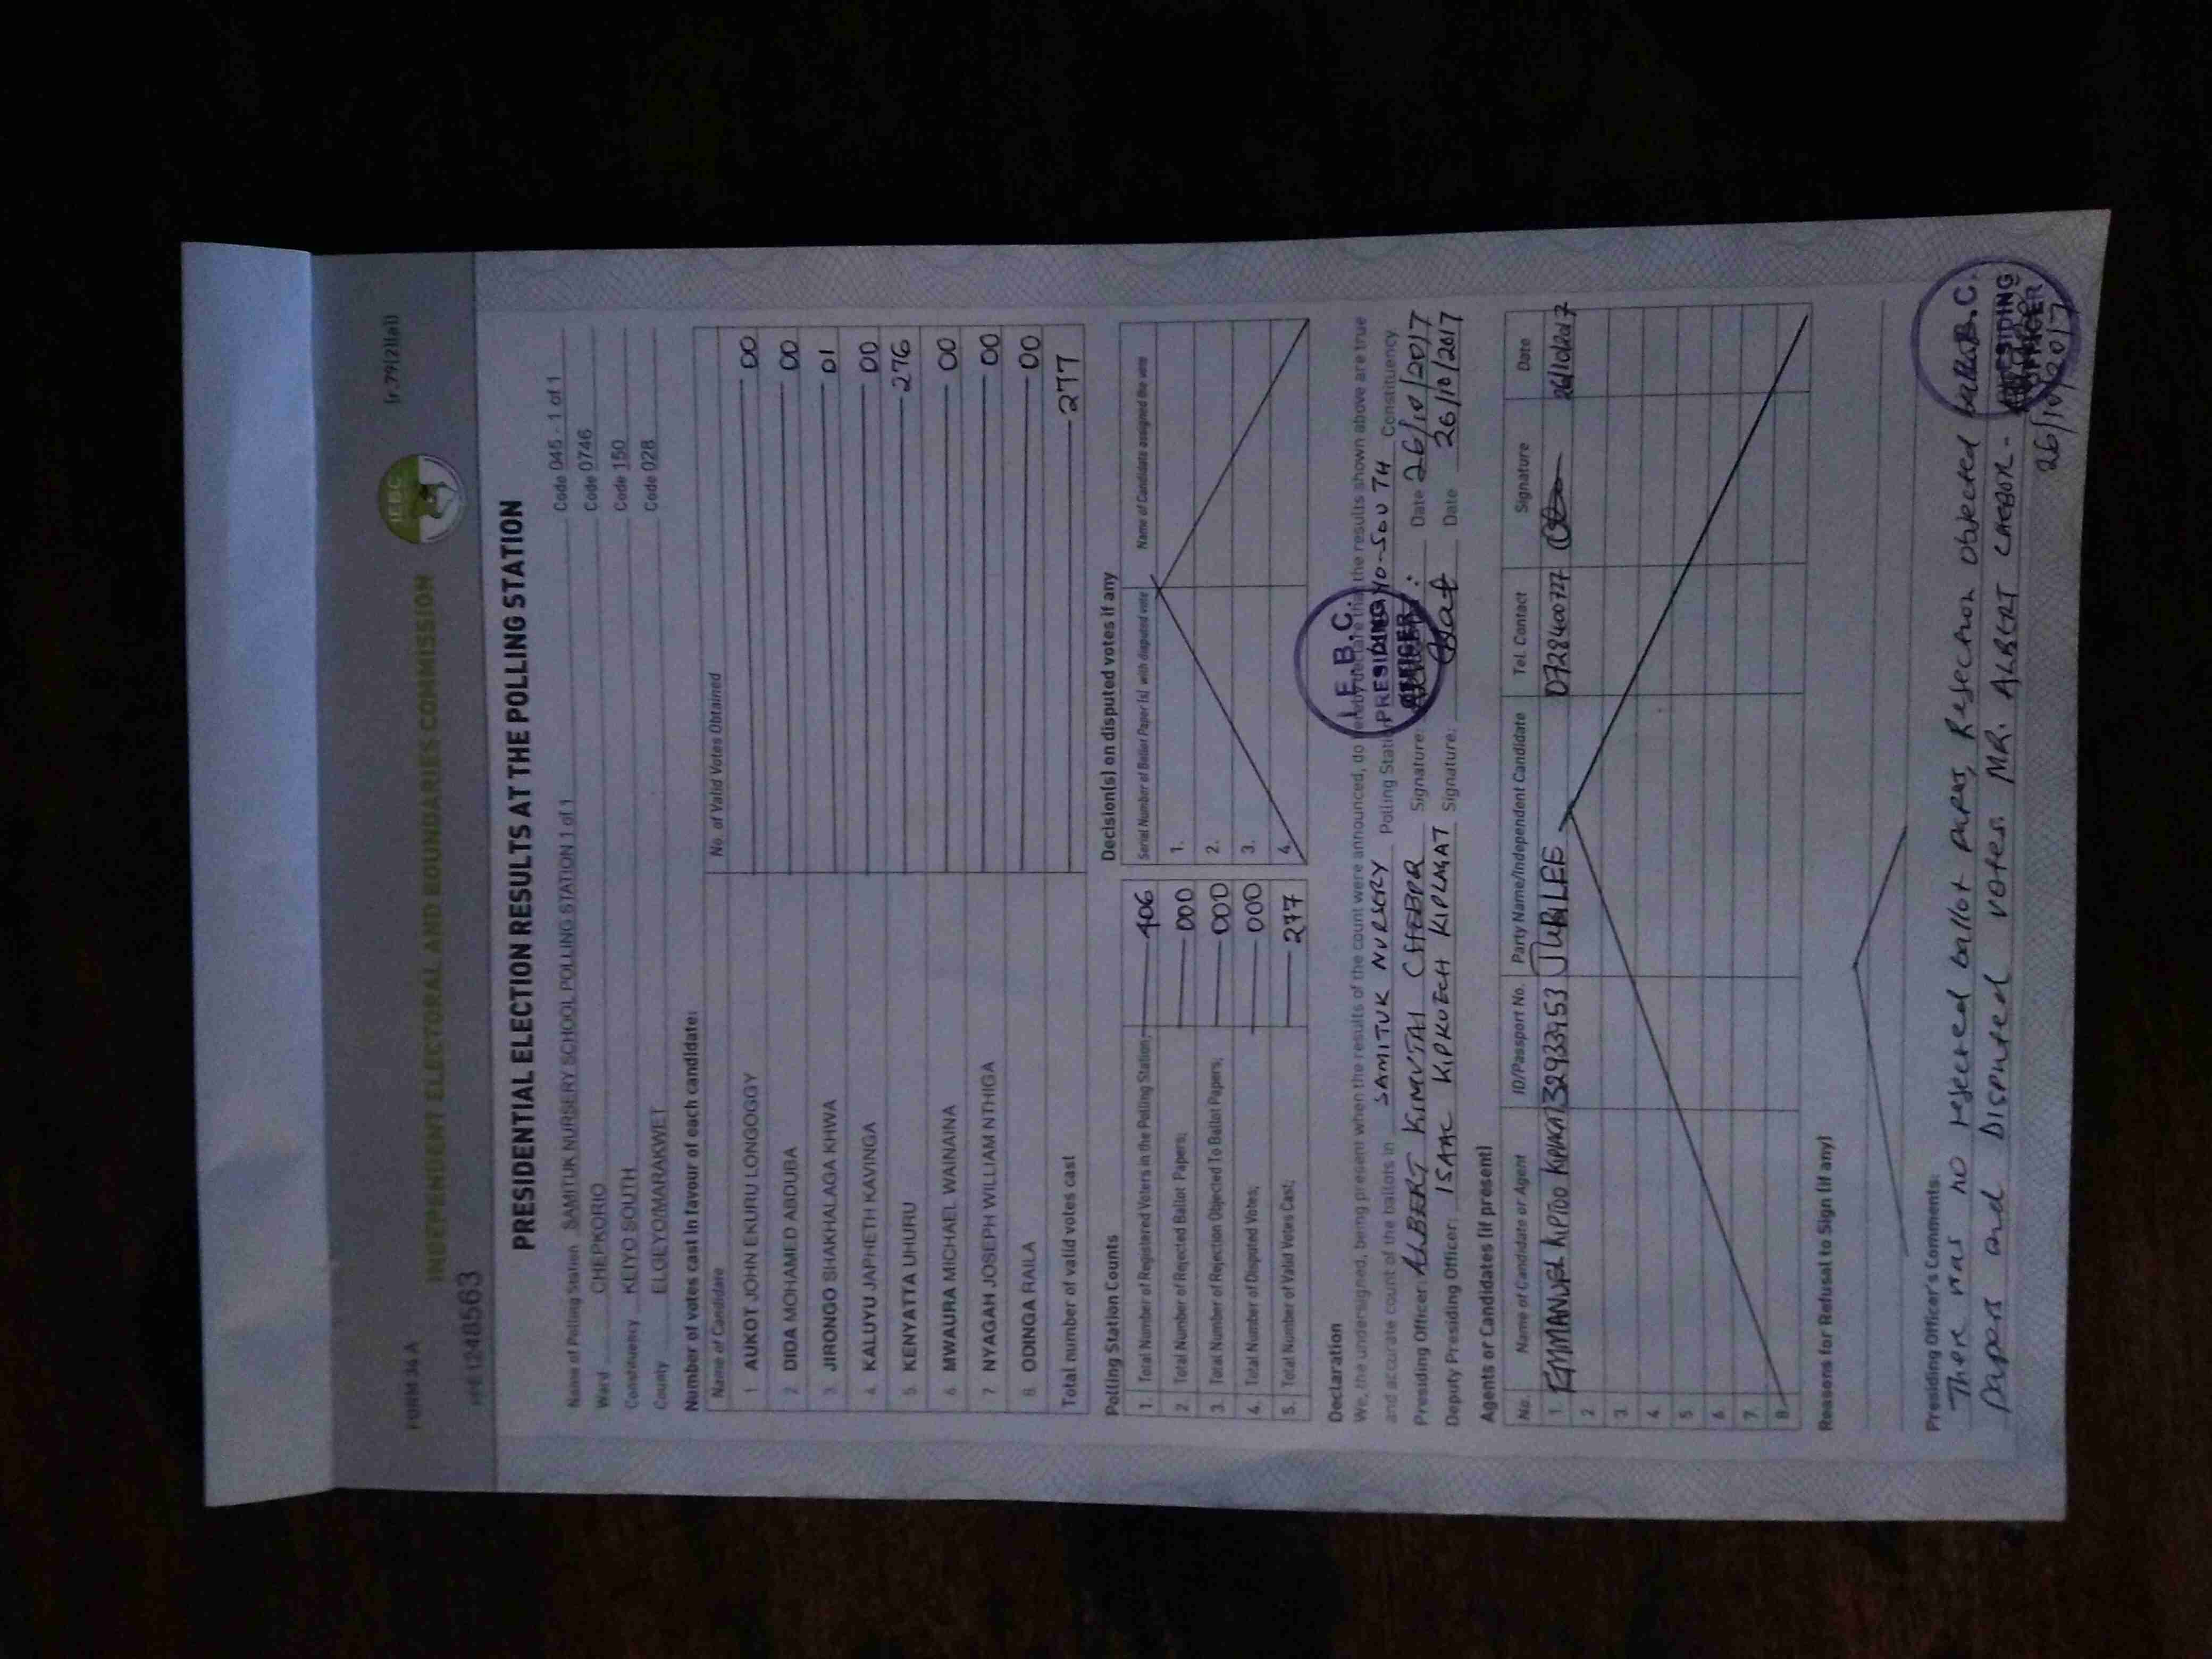 FORM 34 A
(r.79(2)(a))
INDEPENDENT ELECTORAL AND BOUNDARIES COMMISSION
IEBC
1248563
PRESIDENTIAL ELECTION RESULTS AT THE POLLING STATION
Name of Polling Station SAMITUK NURSERY SCHOOL POLLING STATION 1 of 1 Code 045 - 1 of 1
Ward CHEPKORIO Code 0746
Constituency KEIYO SOUTH Code 150
County ELGEYO/MARAKWET Code 028
Number of votes cast in favour of each candidate:
Name of Candidate No. of Valid Votes Obtained
1 AUKOT JOHN EKURU LONGOGGY 00
2. DIDA MOHAMED ABDUBA 00
3. JIRONGO SHAKHALAGA KHWA 01
4. KALUYU JAPHETH KAVINGA 00
5. KENYATTA UHURU 276
6. MWAURA MICHAEL WAINAINA 00
7. NYAGAH JOSEPH WILLIAM NTHIGA 00
8. ODINGA RAILA 00
Total number of valid votes cast 277
Polling Station Counts
1. Total Number of Registered Voters in the Polling Station; 406
2. Total Number of Rejected Ballot Papers; 000
3. Total Number of Rejection Objected To Ballot Papers; 000
4. Total Number of Disputed Votes; 000
5. Total Number of Valid Votes Cast; 277
Decision(s) on disputed votes if any
Serial Number of Ballot Paper (s) with disputed vote Name of Candidate assigned the vote
1.
2.
3.
4.
Declaration
We, the undersigned, being present when the results of the count were announced, do hereby declare that the results shown above are true
and accurate count of the ballots in SAMITUK NURSERY Polling Station YO-SOUTH Constituency
Presiding Officer: ALBERT KIMUTAI CHEBOR Signature: Date 26/10/2017
Deputy Presiding Officer: ISAAC KIPKOECH KIPLAGAT Signature: Date 26/10/2017
I.E.B.C.
PRESIDING
OFFICER
Agents or Candidates (if present)
No. Name of Candidate or Agent ID/Passport No. Party Name/Independent Candidate Tel. Contact Signature Date
1. EMMANUEL KIPTOO KIPLAGAT 32933953 JUBILEE 0728400727 26/10/2017
2
3.
4
5
6
7
8
Reasons for Refusal to Sign (if any)
Presiding Officer's Comments:
There was no rejected ballot papers, Rejection objected ballot
papers and Disputed votes. MR. ALBERT CHEBOR -
I.E.B.C.
PRESIDING
OFFICER
26/10/2017